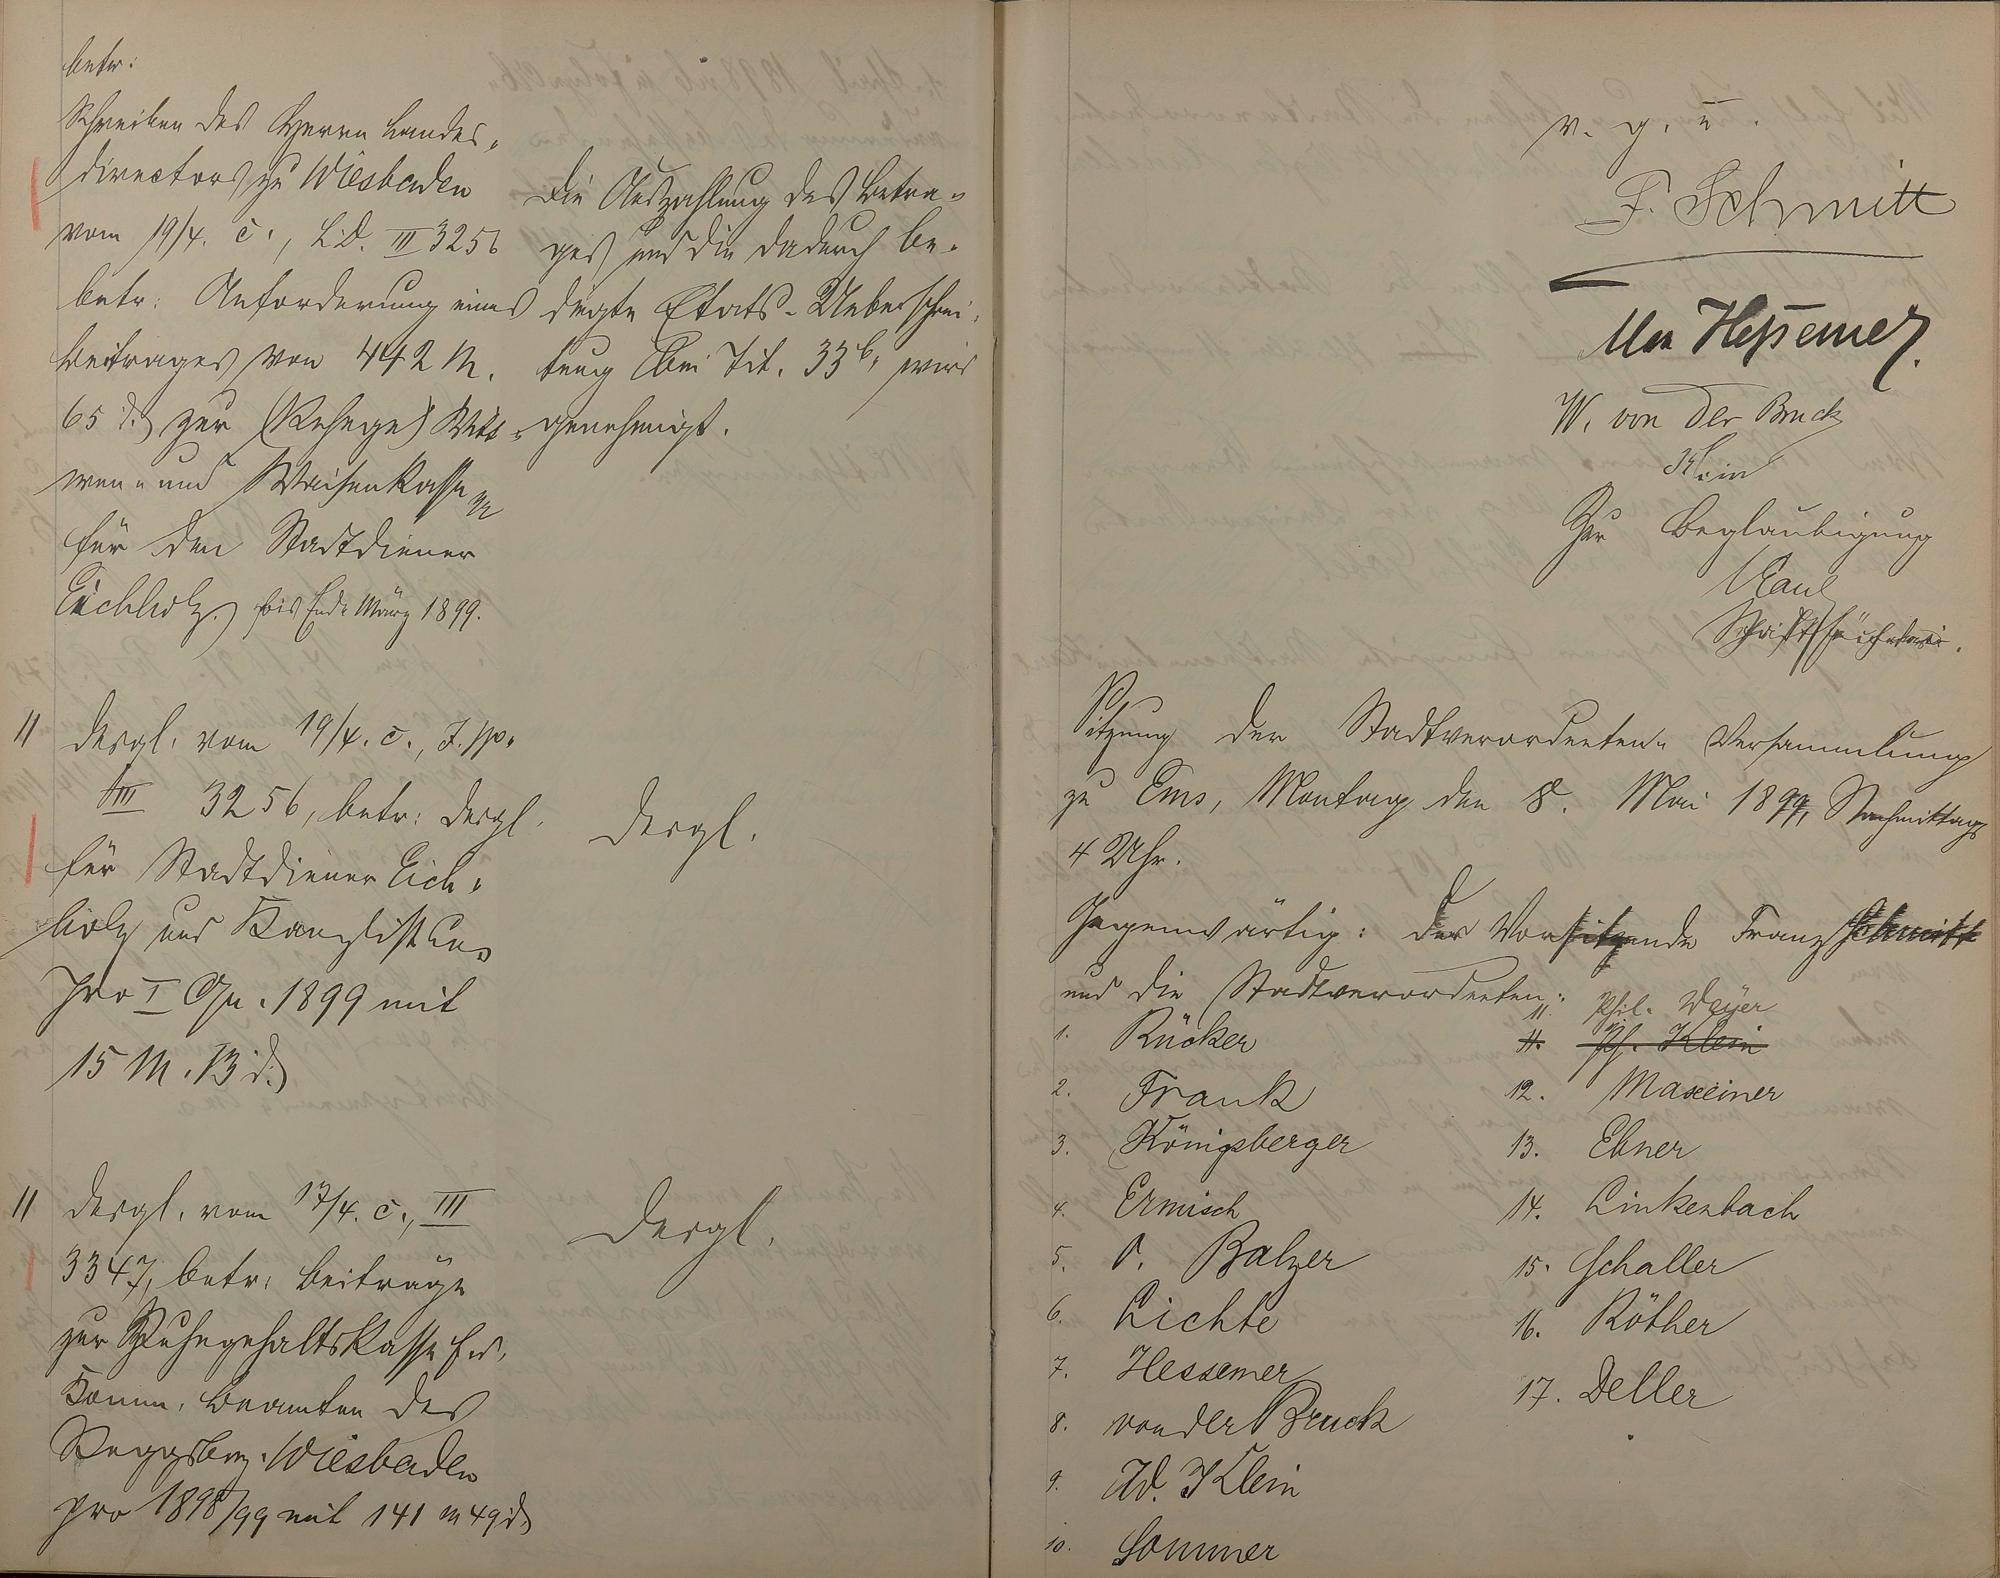 betr:
Schreiben des Herrn Landes-
directors zu Wiesbaden
vom 19/4. c., L.D. III 3256
betr: Anforderung eines
Beitrages von 442 M.
65 d. zur (Ruhege) Witt-
wen- und Waisenkasse
für den Stadtdiener
Eichholz bis Ende März 1899.
Die Auszahlung des Betra-
ges und die dadurch be-
dingte Etats-Ueberschrei-
tung bei Tit. 33b, wird
genehmigt.
" desgl. vom 19/4. c.,
III 3256, betr: desgl.
für Stadtdiener Eich-
holz und Kanzlist
pro I Qu. 1899 mit
15 M. 13 d.
desgl.
" desgl. vom 17/4. c., III
3347, betr: Beiträge
zur Ruhegehaltskasse f. d.
Komm. Beamten des
Reggsbez. Wiesbaden
pro 1898/99 mit 141 M 49 d.
desgl.
v. g. u.
F. Schmitt
Hessemer.
W. von der Bruck
Klein
Zur Beglaubigung
Kaul
Schriftführer.
Sitzung der Stadtverordneten-Versammlung
zu Ems, Montag den 8. Mai 1899, Nachmittags
4 Uhr.
Gegenwärtig: der Vorsitzende Franz Schmitt
und die Stadtverordneten:
1. Rücker
2. Frank
3. Königsberger
4. Ermisch
5. O. Balzer
6. Lichte
7. Hessemer
8. von der Bruck
9. Ad. Klein
10. Sommer
11. Phil. Weyer
11. Ph. Klein
12. Maxeiner
13. Ebner
14. Linkenbach
15. Schaller
16. Röther
17. Deller